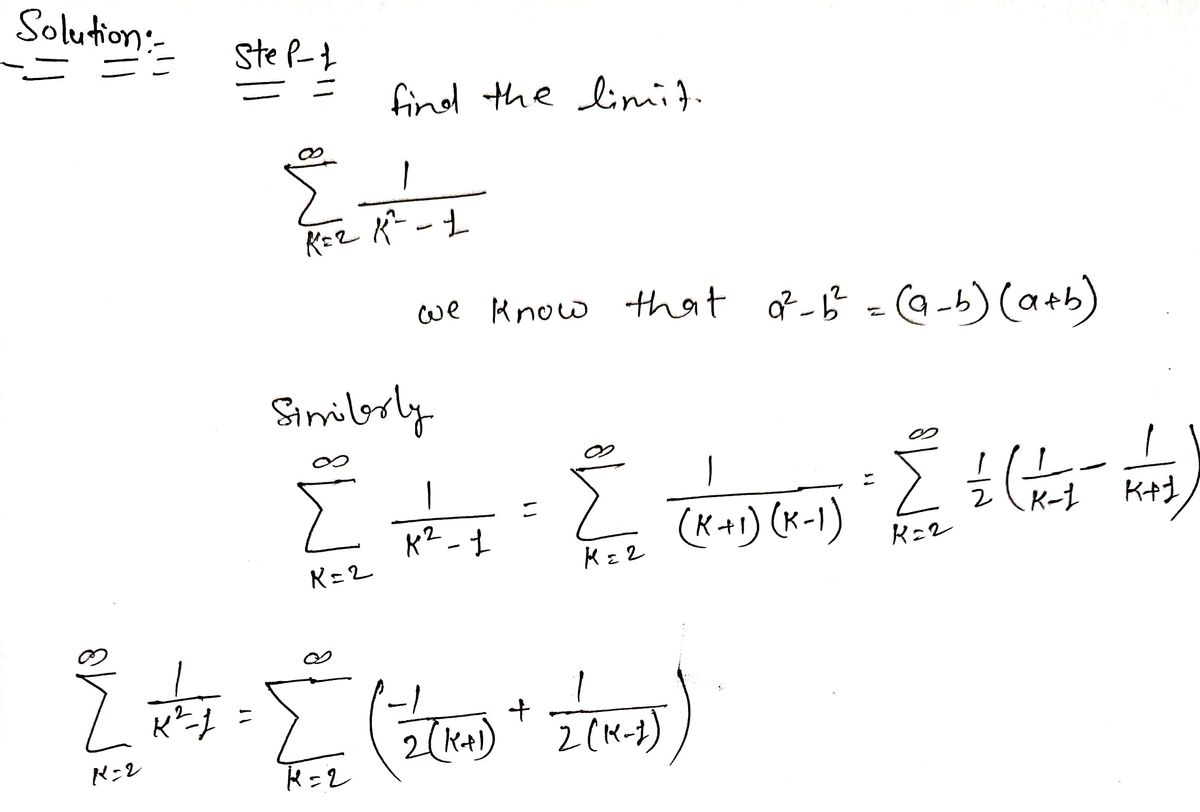 Solution:-
Step-1
find the limit.
∑_{K=2}^{∞} 1/(K²-1)
we know that a²-b² = (a-b)(a+b)
Similarly
∑_{K=2}^{∞} 1/(K²-1) = ∑_{K=2}^{∞} 1/((K+1)(K-1)) = ∑_{K=2}^{∞} 1/2 (1/(K-1) - 1/(K+1))
∑_{K=2}^{∞} 1/(K²-1) = ∑_{K=2}^{∞} (-1/(2(K+1)) + 1/(2(K-1)))